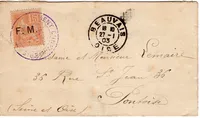 F. M.
BEAUVAIS
27-1
03
OISE
Madame et Monsieur Lemaire
35 Rue St Jean 35
Pontoise
(Seine et Oise)